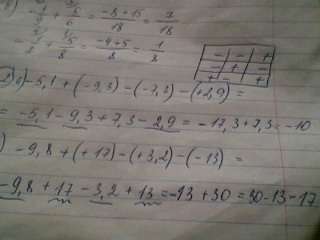 + = (-8+15)/18 = 7/18
+ 5/8 = (-4+5)/8 = 1/8
- - +
- + -
+ - +
а) -5,1 + (-9,3) - (-7,3) - (+2,9) =
= -5,1 - 9,3 + 7,3 - 2,9 = -17,3 + 7,3 = -10
) -9,8 + (+17) - (+3,2) - (-13) =
-9,8 + 17 - 3,2 + 13 = -13 + 30 = 30 - 13 = 17